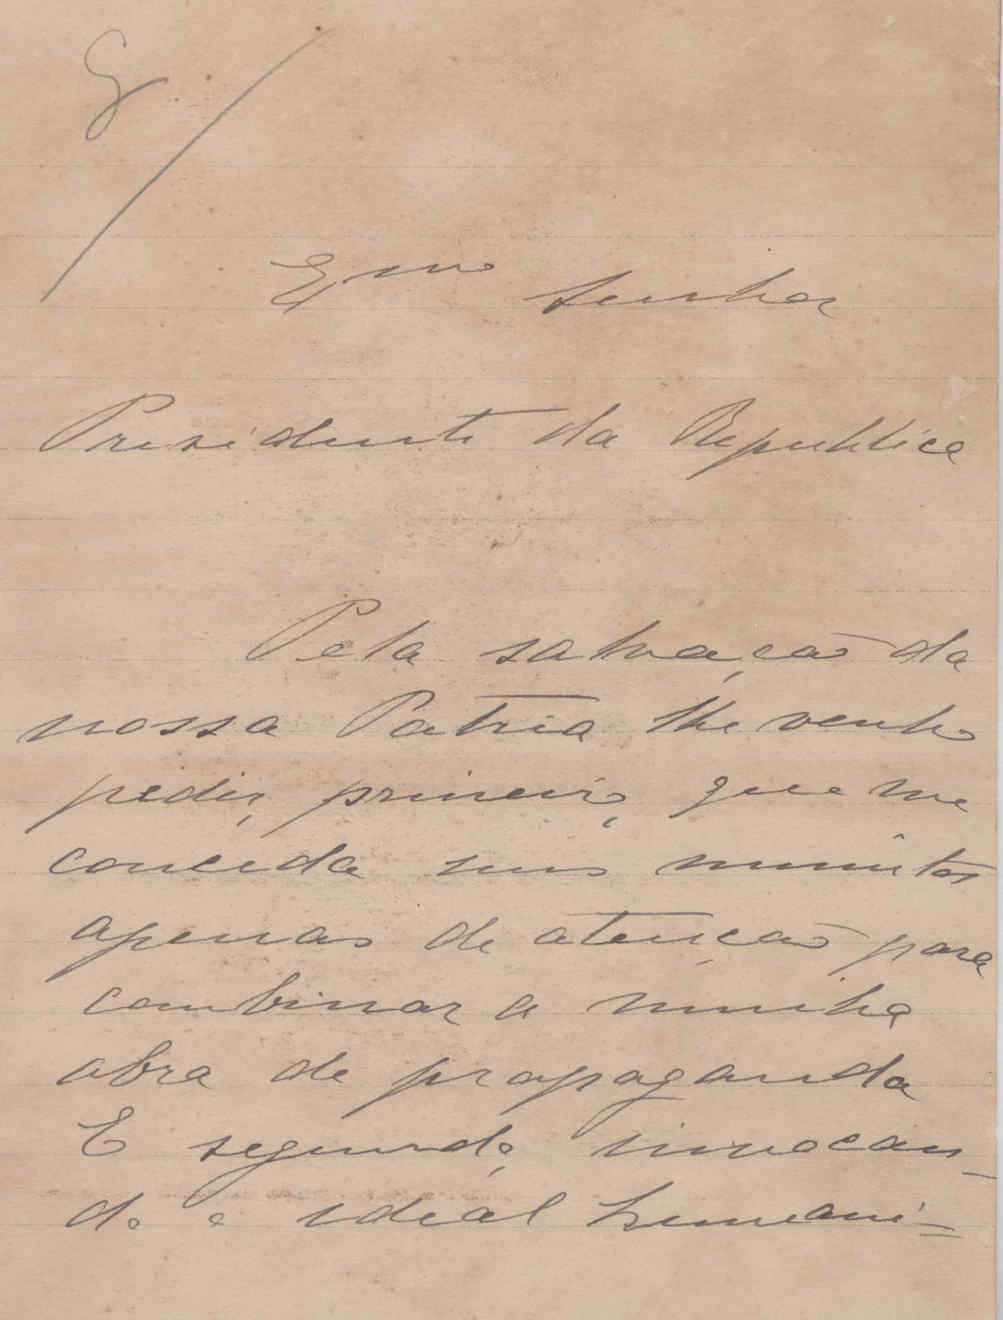 Exmo Senhor
Presidente da Republica
Pela salvação da
nossa Patria lhe venho
pedir, primeiro, que me
conceda uns minutos
apenas de atenção para
combinar a minha
obra de propaganda
E segundo, invocan-
do o ideal humani=